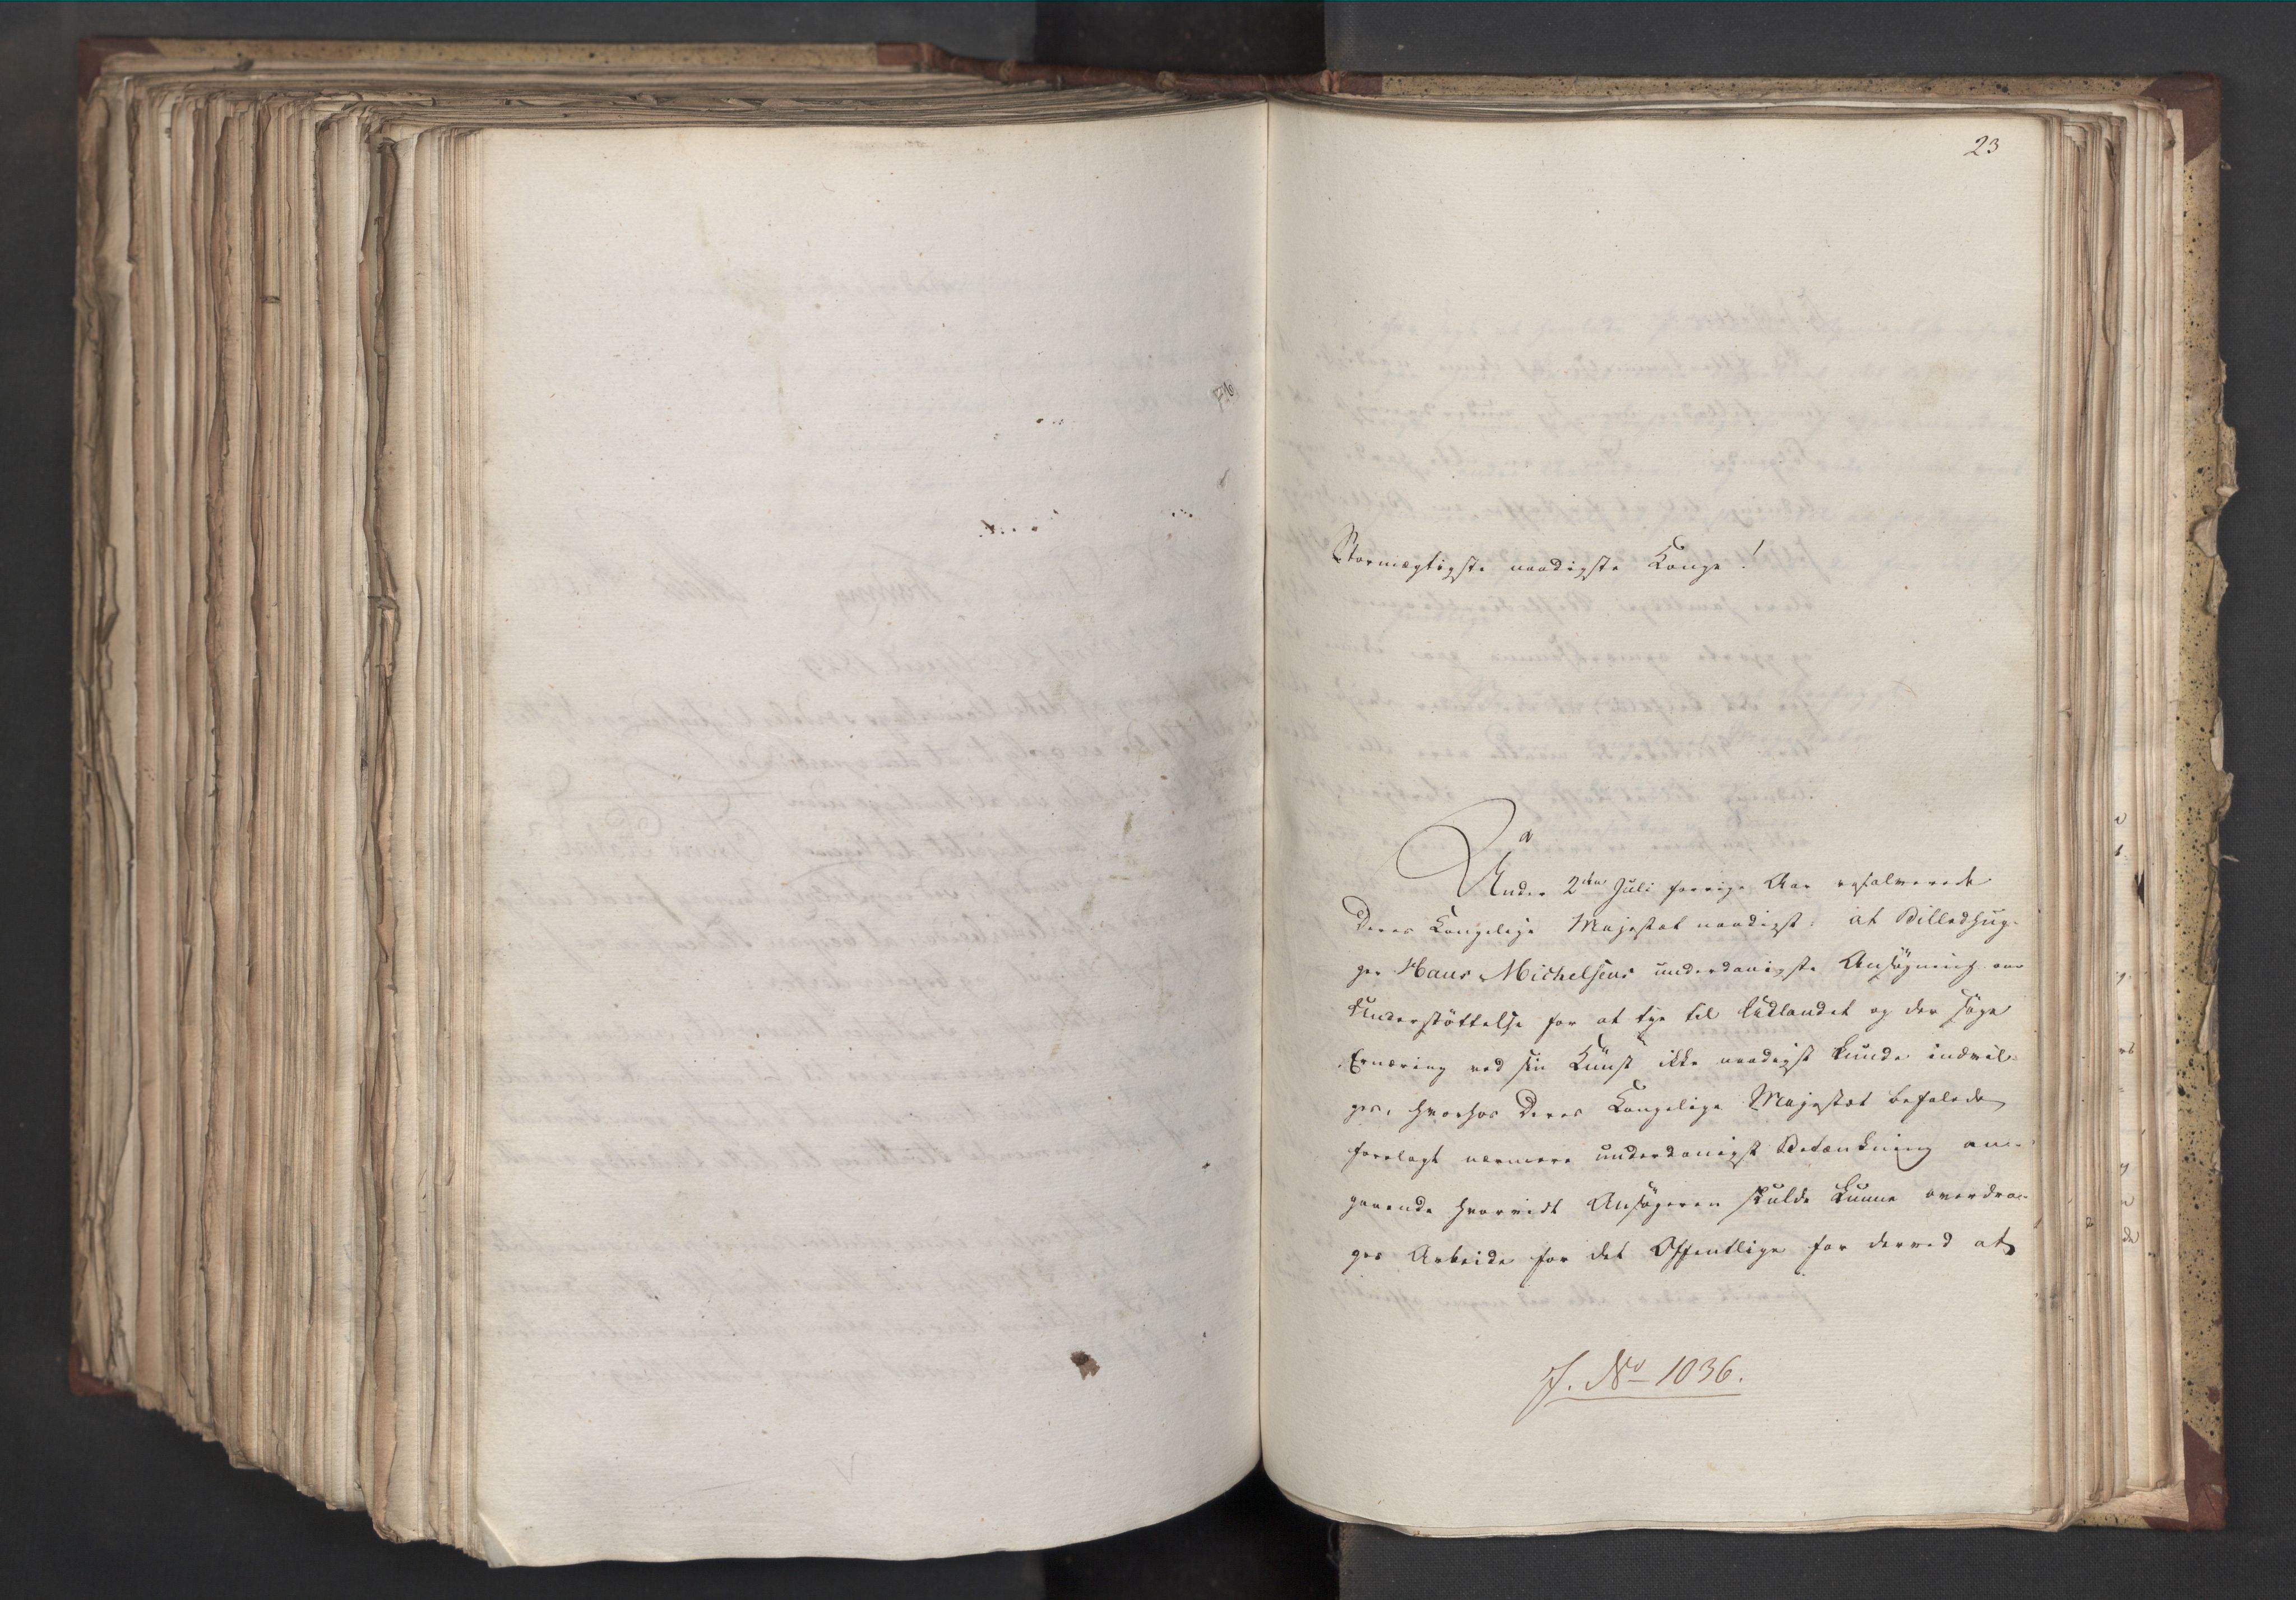 23
Stormægtigste naadigste Konge!
Under 2den Juli forrige Aar resolverede
Deres Kongelige Majestæt naadigst: at Billedhug-
ger Hans Michelsens underdanigste Ansøgning om
Understöttelse for at tye til Udlandet og der söge
Ernæring ved sin Kunst ikke naadigst kunde indvil-
ges, hvorhos Deres Kongelige Majestæt befalede
forelagt nærmere underdanigst Betænkning an-
gaaende hvorvidt Ansögeren skulde kunne overdra-
ges Arbeide for det Offentlige for derved at
J. No 1036.